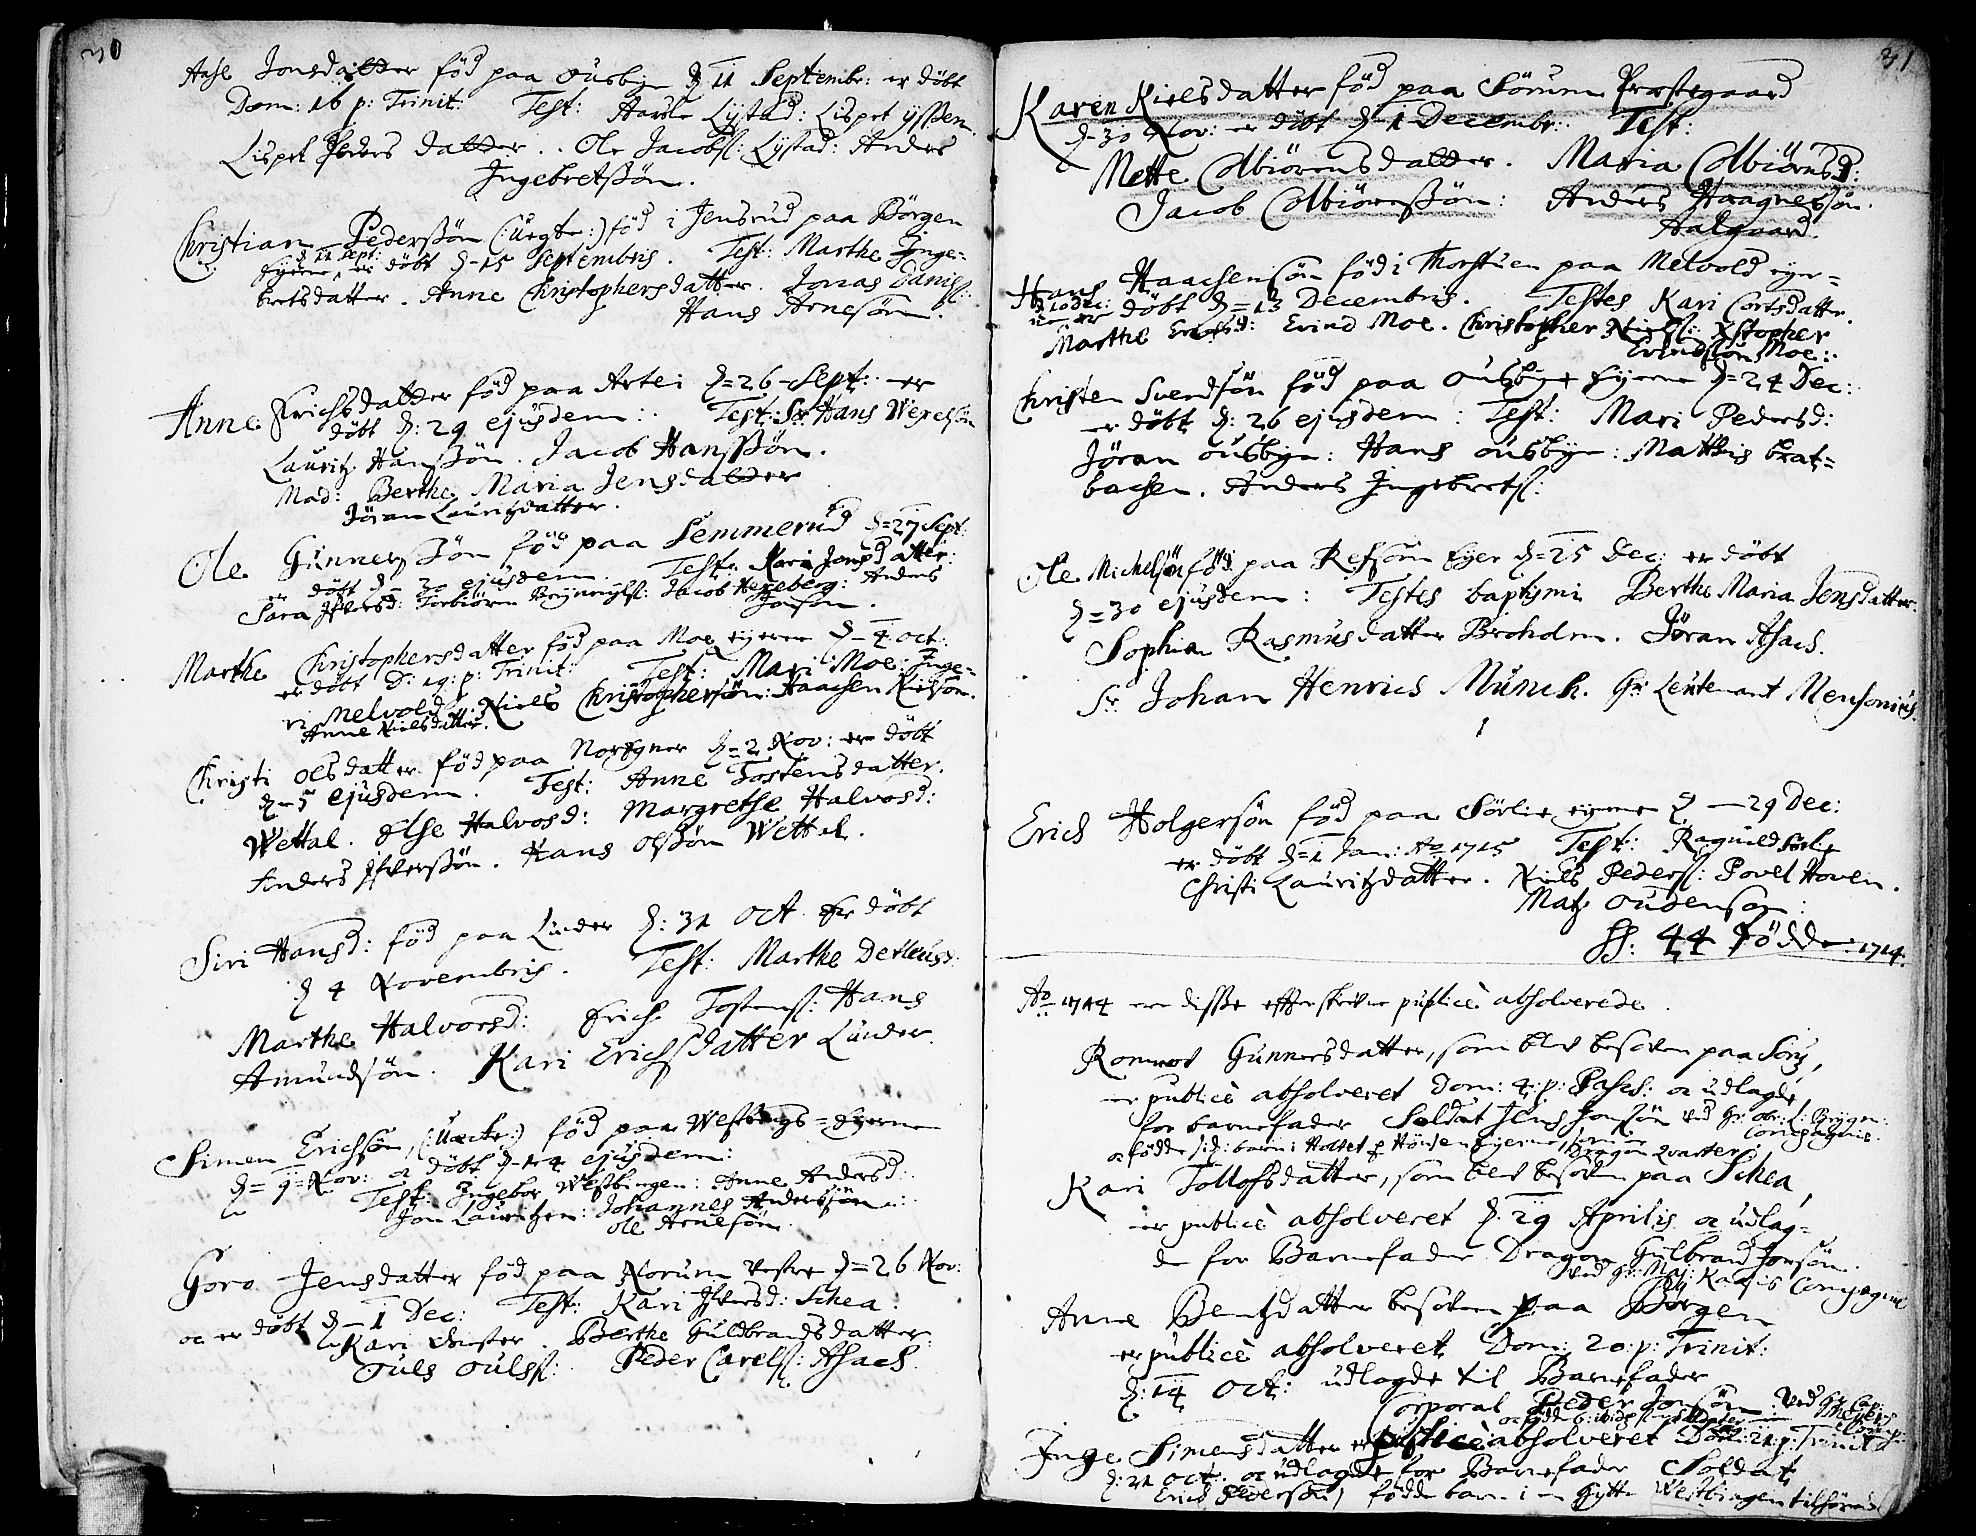 30
Aase Jonsdatter föd paa Ousby d 11 Septembr: er döbt
Dom: 16 p: Trinit: Test: Lystad: Lispet
Lispet Peders datter. Ole Jacobs: Lystad: Anders
Ingebretssön.
Christian Pederssön (: uegte:) föd i Jensrud paa Börgen
d 11 Sept:
Eyerne, er döbt d 15 Septembris. Test: Marthe Inge-
bretsdatter. Anne Christophersdatter. Jonas Daniels:
Hans Arnesön.
Anne Erichsdatter föd paa Artei d=26 Sept: er
döbt d: 29 ejusdem: Test: Sr Hans Wexelsön
Lauritz Hanssön. Jacob Hanssön.
Mad: Berthe Maria Jensdatter
Jöran Lauritzdatter.
Ole Gunnerssön föd paa Semmerud d=27 Sept:
er döbt d= 30 ejusdem. Test: Kari Jonsdatter:
Sara Ifversd: Torbiörn Jacob Hexeberg: Anders
Jonsön.
Marthe Christophersdatter föd paa Moe eyerne d= 4 Oct:
er döbt D: 19: p: Trinit: Test: Mari Moe: Inge-
ri Melvold. Niels Christophersön: Haachen Nielsön.
Anne Nielsdatter.
Christi Olsdatter föd paa Norigner d=2 Nov: er döbt
d=5 ejusdem. Test: Anne Tostensdatter.
Wettal. Else Halvosd: Margrethe Halvosd:
Anders Ifverssön. Hans Olssön Wettal.
Siri Hansd: föd paa Linder d: 31 Oct er döbt
d 4 Novembris. Test: Marthe Detleusd:
Marthe Halvorsd: Erich Tostens: Hans
Amundsön. Kari Erichsdatter Linder.
Simen Erichsön, (: uecte:) föd paa Westbyes=Eyerne
d= 9=Nov: oc döbt d=14 ejusdem:
Test: Ingebor Westbingen: Anne Andersd:
Jon Lauritzen: Johannes Anderssön:
Ole Arnesön.
Goro Jensdatter föd paa Norum vestre d=26 Nov:
oc er döbt d=1 Dec: Test: Kari Ifversd: Schea:
Kari Berthe Guldbrandsdatter:
Ouls: Peder Carels: Asach.
31
Karen Nielsdatter föd paa Sörum Præstegaard
d=30 Nov: er döbt d=1 Decembr: Test:
Mette Colbiörensdatter. Maria Colbiörnsd:
Jacob Colbiörenssön: Anders Haagnessön.
Aalgaard.
Hans Haachensön föd i Thorstuen paa Melvold eyer=
d 10 Dec:
er döbt d=13 Decembris. Testes Kari Cortsdatter.
Marthe Erichsd: Evind Moe. Christopher Niels: Xstopher
Evindssön Moe:
Christen Svendsön föd paa Ousbye Eyerne d=24 Dec:
er döbt d: 26 ejusdem: Test: Mari Pedersd:
Jöran Ousbye: Hans Ousbye: Matthis brat=
bachen. Anders Ingebrets:
Ole Michelsön föd paa Refsom Eyer d=25 Dec: er döbt
d=30 ejusdem: Testes baptismi Berthe Maria Jensdatter.
Sophia Rasmusdatter Broholm. Jöran Asach.
Sr Johan Henrich Munch. Hr: Leutenant Mensonius.
Erich Holgersön föd paa Sörlie eyerne d — 29 Dec:
er döbt d=1 Jan: Ao 1715 Test: Ragnild Sörlie
Christi Lauritzdatter. Niels Peders: Povel Hoven.
Matz Oudensøn:
SS: 44 Födde: 1714.
Ao 1714 ere disse efterskrevne publicè absolverede.
Rommot Gunnersdatter, som blev besoven paa
er publicè absolveret Dom: 4: p: Pasch: oc udlagde
for barnefader Soldat Jens Jonssön ved Hr ob: l: Brygen:
Compagnie.
oc födde sid: barn i Holtet p Hönsen Eyerne, Dragon Qvarter
Kari Tollofsdatter, som blev besoven paa Schea,
er publicè absolveret d. 29 Aprilis oc udlag=
de for Barnefader Dragon Gulbrand Jonsön.
ved Hr: Maj: Compagnie
Anne Bentzdatter besoven paa Börgen
er publicè absolveret Dom: 20: p: Trinit:
d: 14 Oct: udlagde til Barnefader
Corporal Peder Jonsön: ved Hr Cap:
Inge Simensdatter er publicè absolveret Dom: 21 p: Trinit
d: 21 Oct: oc udlagde for Barnefader Soldat
Erich Pedersön, födde barn i en Hytte Westbingen tilhörende